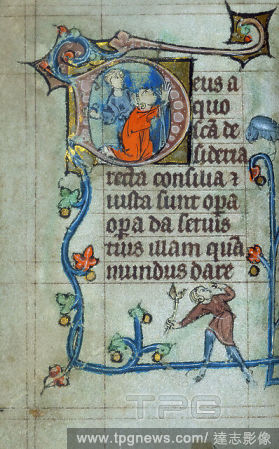 Deus a
quo
sc̄a de
sideria
recta consilia ⁊
iusta sunt op̄a
op̄a da seruis
tuis illam quā
mundus dare
TPG
www.tpgnews.com/ 達志影像